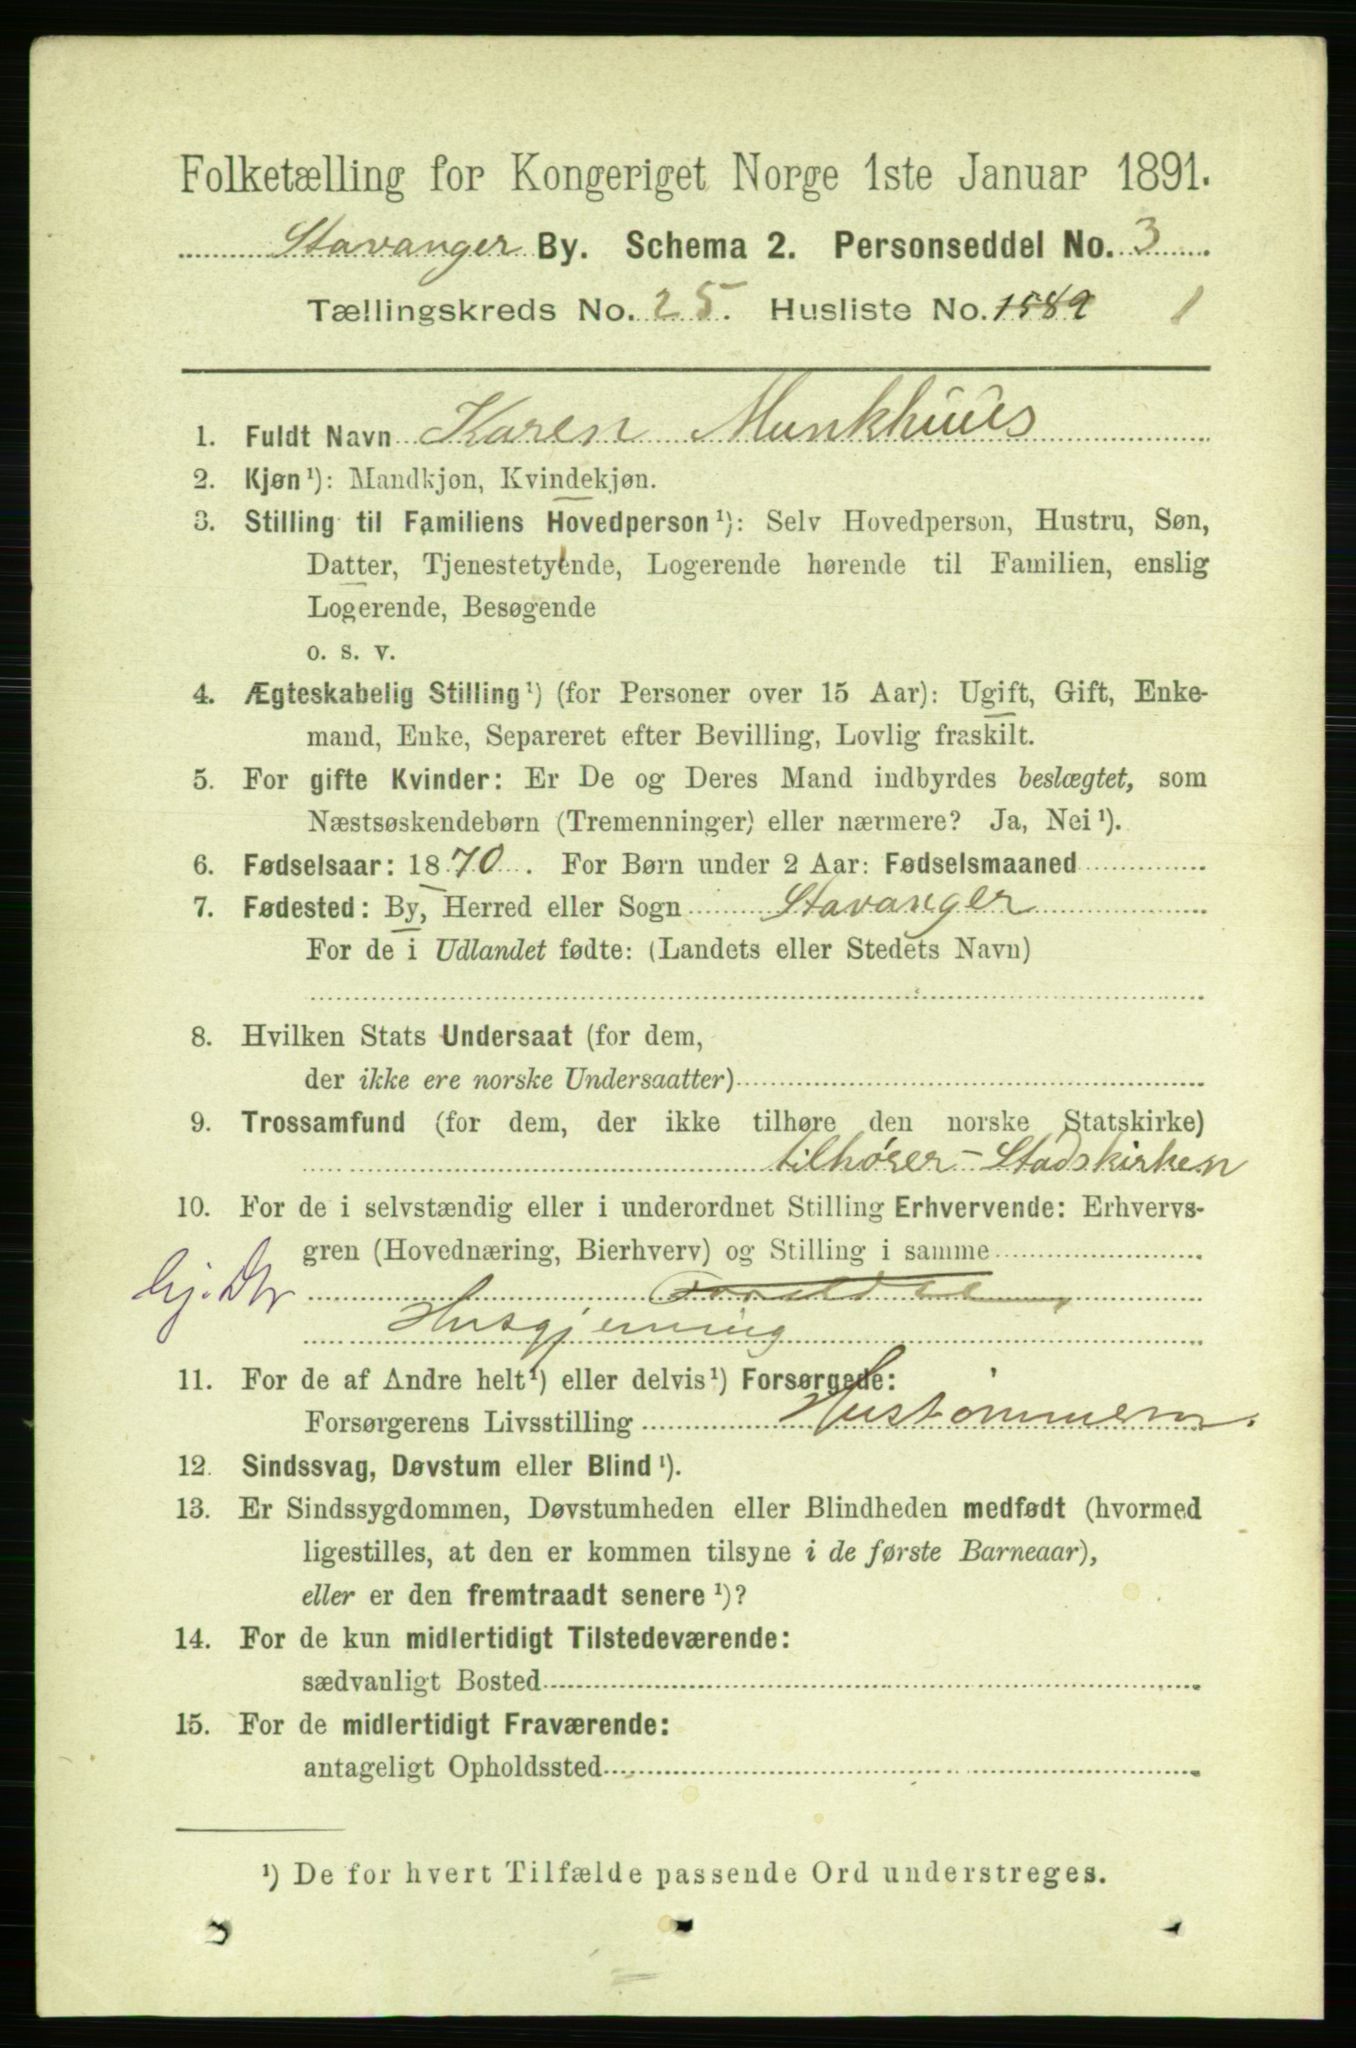 Folketælling for Kongeriget Norge 1ste Januar 1891.
Stavanger By. Schema 2. Personseddel No. 3
Tællingskreds No. 25. Husliste No. 1589 1
1. Fuldt Navn Karen Munkhuus
2. Kjøn¹): Mandkjøn, Kvindekjøn.
3. Stilling til Familiens Hovedperson¹): Selv Hovedperson, Hustru, Søn,
Datter, Tjenestetyende, Logerende hørende til Familien, enslig
Logerende, Besøgende
o. s. v.
4. Ægteskabelig Stilling¹) (for Personer over 15 Aar): Ugift, Gift, Enke-
mand, Enke, Separeret efter Bevilling, Lovlig fraskilt.
5. For gifte Kvinder: Er De og Deres Mand indbyrdes beslægtet, som
Næstsøskendebørn (Tremenninger) eller nærmere? Ja, Nei¹).
6. Fødselsaar: 1870. For Børn under 2 Aar: Fødselsmaaned
7. Fødested: By, Herred eller Sogn Stavanger
For de i Udlandet fødte: (Landets eller Stedets Navn)
8. Hvilken Stats Undersaat (for dem,
der ikke ere norske Undersaatter)
9. Trossamfund (for dem, der ikke tilhøre den norske Statskirke)
tilhører - Stadskirken
10. For de i selvstændig eller i underordnet Stilling Erhvervende: Erhvervs-
gren (Hovednæring, Bierhverv) og Stilling i samme
hj. Dtr
Husgjerning
11. For de af Andre helt¹) eller delvis¹) Forsørgede:
Forsørgerens Livsstilling Hustømmerm.
12. Sindssvag, Døvstum eller Blind¹).
13. Er Sindssygdommen, Døvstumheden eller Blindheden medfødt (hvormed
ligestilles, at den er kommen tilsyne i de første Barneaar),
eller er den fremtraadt senere¹)?
14. For de kun midlertidigt Tilstedeværende:
sædvanligt Bosted
15. For de midlertidigt Fraværende:
antageligt Opholdssted
¹) De for hvert Tilfælde passende Ord understreges.